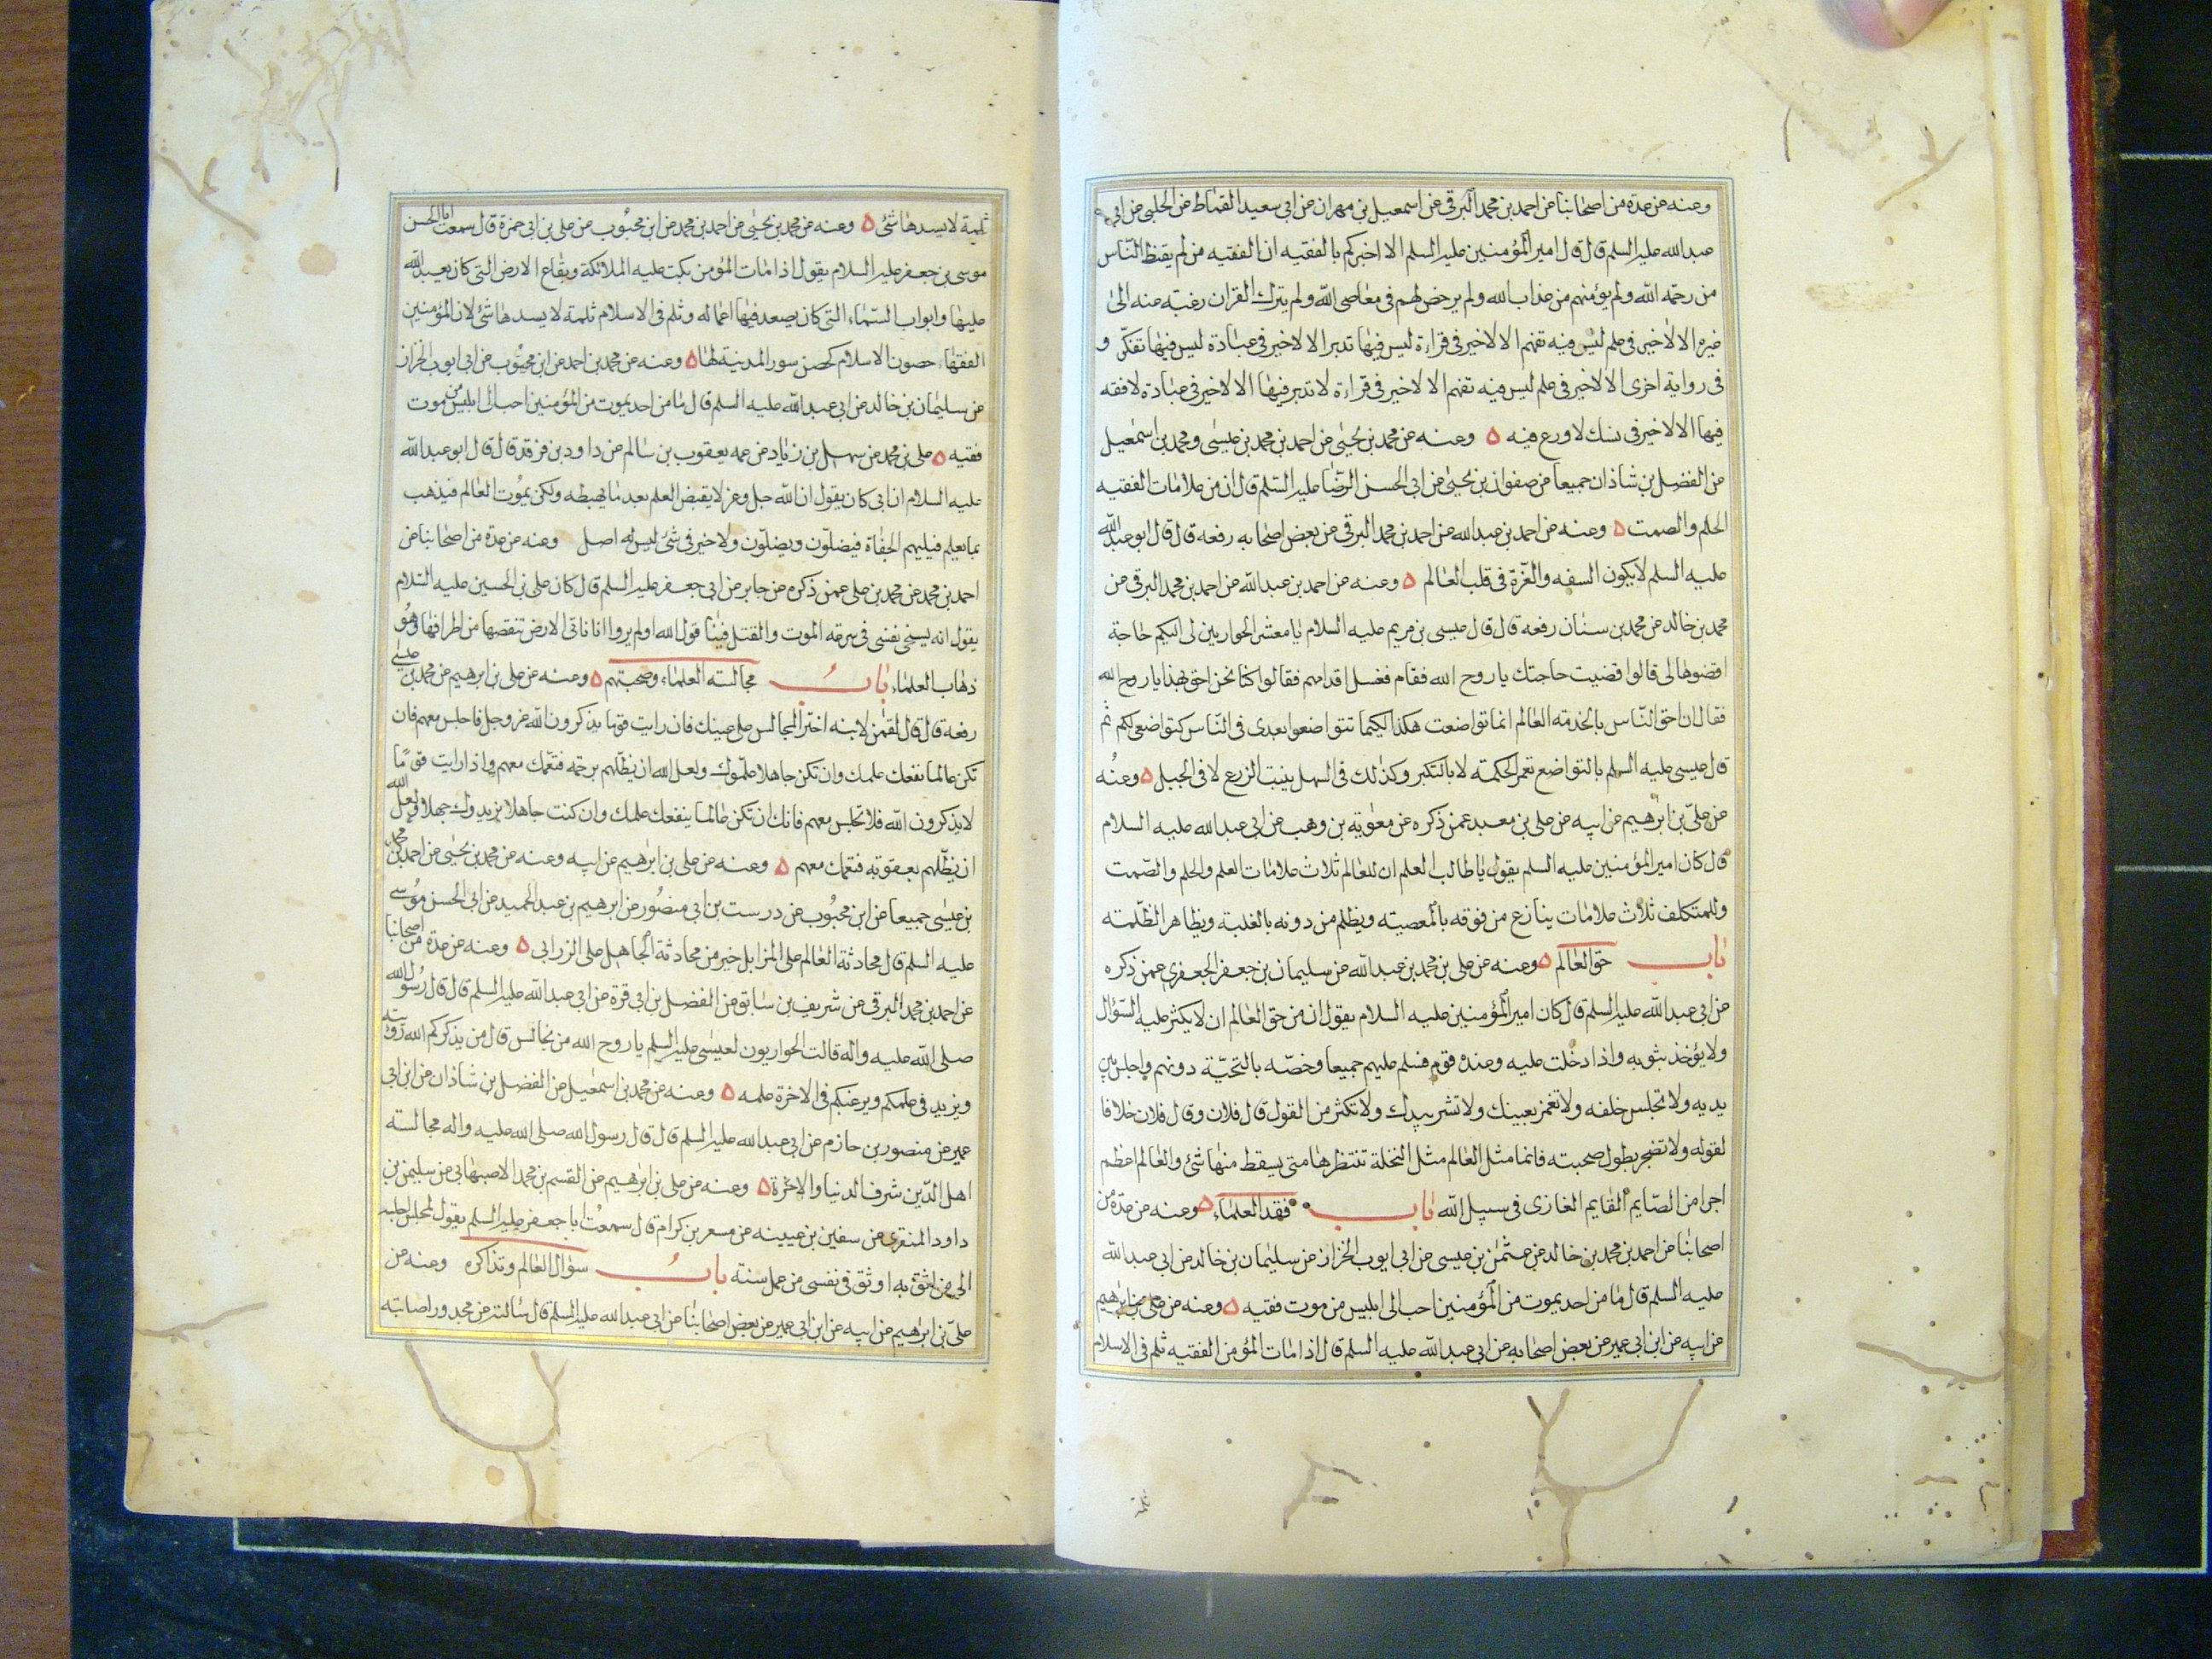 وعنه عن عدة من اصحابنا عن احمد بن محمد البرقي عن اسمعيل بن مهران عن ابي سعيد القماط عن الحلبي عن ابي
عبد الله عليه السلم قال قال امير المؤمنين عليه السلم الا اخبركم بالفقيه ان الفقيه من لم يقنط الناس
من رحمة الله ولم يؤمنهم من عذاب الله ولم يرخص لهم في معاصي الله ولم يترك القران رغبته عنه الى
غيره الا لا خير في علم ليس فيه تفهم الا لا خير في قراءة ليس فيها تدبر الا لا خير في عبادة ليس فيها تفكر و
في رواية اخرى الا لا خير في علم ليس فيه تفهم الا لا خير في قراءة لا تدبر فيها الا لا خير في عبادة لا فقه
فيها الا لا خير في نسك لا ورع فيه ٥ وعنه عن محمد بن يحيى عن احمد بن محمد بن عيسى ومحمد بن اسمعيل
عن الفضل بن شاذان جميعا عن صفوان بن يحيى عن ابي الحسن الرضا عليه السلم قال ان من علامات الفقيه
الحلم والصمت ٥ وعنه عن احمد بن عبد الله عن احمد بن محمد البرقي عن بعض اصحابه رفعه قال قال ابو عبد الله
عليه السلم لا يكون السفه والغرة في قلب العالم ٥ وعنه عن احمد بن عبد الله عن احمد بن محمد البرقي عن
محمد بن خالد عن محمد بن سنان رفعه قال قال عيسى بن مريم عليه السلام يا معشر الحواريين لي اليكم حاجة
اقضوها لي قالوا قضيت حاجتك يا روح الله فقام فغسل اقدامهم فقالوا كنا نحن احق بهذا يا روح الله
فقال ان احق الناس بالخدمة العالم انما تواضعت هكذا لكيما تتواضعوا بعدي في الناس كتواضعي لكم ثم
قال عيسى عليه السلم بالتواضع تعمر الحكمة لا بالتكبر وكذلك في السهل ينبت الزرع لا في الجبل ٥ وعنه
عن علي بن ابرهيم عن ابيه عن علي بن معبد عمن ذكره عن معوية بن وهب عن ابي عبد الله عليه السلام
قال كان امير المؤمنين عليه السلم يقول يا طالب العلم ان للعالم ثلاث علامات العلم والحلم والصمت
وللمتكلف ثلاث علامات ينازع من فوقه بالمعصية ويظلم من دونه بالغلبة ويظاهر الظلمة
باب حق العالم ٥ وعنه عن علي بن محمد بن عبد الله عن سليمان بن جعفر الجعفري عمن ذكره
عن ابي عبد الله عليه السلم قال كان امير المؤمنين عليه السلام يقول ان من حق العالم ان لا يكثر عليه السؤال
ولا يؤخذ بثوبه واذا دخلت عليه وعنده قوم فسلم عليهم جميعا وخصه بالتحية دونهم واجلس بين
يديه ولا تجلس خلفه ولا تغمز بعينك ولا تشر بيدك ولا تكثر من القول قال فلان وقال فلان خلافا
لقوله ولا تضجر بطول صحبته فانما مثل العالم مثل النخلة تنتظرها متى يسقط منها شئ والعالم اعظم
اجرا من الصايم القايم الغازي في سبيل الله باب فقد العلماء ٥ وعنه عن عدة من
اصحابنا عن احمد بن محمد بن خالد عن عثمن بن عيسى عن ابي ايوب الخزاز عن سليمان بن خالد عن ابي عبد الله
عليه السلم قال ما من احد يموت من المؤمنين احب الى ابليس من موت فقيه ٥ وعنه عن علي بن ابرهيم
عن ابيه عن ابن ابي عمير عن بعض اصحابه عن ابي عبد الله عليه السلم قال اذا مات المؤمن الفقيه ثلم في الاسلام
ثلمة
ثلمة لا يسدها شئ ٥ وعنه عن محمد بن يحيى عن احمد بن محمد عن ابن محبوب عن علي بن ابي حمزة قال سمعت ابا الحسن
موسى بن جعفر عليه السلام يقول اذا مات المؤمن بكت عليه الملائكة وبقاع الارض التي كان يعبد الله
عليها وابواب السماء التي كان يصعد فيها اعماله وثلم في الاسلام ثلمة لا يسدها شئ لان المؤمنين
الفقهاء حصون الاسلام كحصن سور المدينة لها ٥ وعنه عن محمد بن احمد عن ابن محبوب عن ابي ايوب الخزاز
عن سليمان بن خالد عن ابي عبد الله عليه السلم قال ما من احد يموت من المؤمنين احب الى ابليس من موت
فقيه ٥ علي بن محمد عن سهل بن زياد عن عمه يعقوب بن سالم عن داود بن فرقد قال قال ابو عبد الله
عليه السلام ان ابي كان يقول ان الله جل وعز لا يقبض العلم بعد ما يهبطه ولكن يموت العالم فيذهب
بما يعلم فيليهم الجفاة فيضلون ويضلون ولا خير في شئ ليس له اصل وعنه عن عدة من اصحابنا عن
احمد بن محمد عن محمد بن علي عمن ذكره عن جابر عن ابي جعفر عليه السلم قال كان علي بن الحسين عليه السلام
يقول انه يسخي نفسي في سرعة الموت والقتل فينا قول الله اولم يروا انا ناتي الارض ننقصها من اطرافها وهو
ذهاب العلماء باب مجالسة العلماء وصحبتهم ٥ وعنه عن علي بن ابرهيم عن محمد بن عيسى
رفعه قال قال لقمن لابنه اختر المجالس على عينك فان رايت قوما يذكرون الله عز وجل فاجلس معهم فان
تكن عالما نفعك علمك وان تكن جاهلا علموك ولعل الله ان يظلهم برحمة فتعمك معهم واذا رايت قوما
لا يذكرون الله فلا تجلس معهم فانك ان تكن عالما ينفعك علمك وان كنت جاهلا يزيدوك جهلا ولعل الله
ان يظلهم بعقوبة فتعمك معهم ٥ وعنه عن علي بن ابرهيم عن ابيه وعنه عن محمد بن يحيى عن احمد بن محمد
بن عيسى جميعا عن ابن محبوب عن درست بن ابي منصور عن ابرهيم بن عبد الحميد عن ابي الحسن موسى
عليه السلم قال محادثة العالم على المزابل خير من محادثة الجاهل على الزرابي ٥ وعنه عن عدة من اصحابنا
عن احمد بن محمد البرقي عن شريف بن سابق عن الفضل بن ابي قرة عن ابي عبد الله عليه السلم قال قال رسول الله
صلى الله عليه واله قالت الحواريون لعيسى عليه السلم يا روح الله من نجالس قال من يذكركم الله رؤيته
ويزيد في علمكم ويرغبكم في الاخرة علمه ٥ وعنه عن محمد بن اسمعيل عن الفضل بن شاذان عن ابن ابي
عمير عن منصور بن حازم عن ابي عبد الله عليه السلم قال قال رسول الله صلى الله عليه واله مجالسة
اهل الدين شرف الدنيا والاخرة ٥ وعنه عن علي بن ابرهيم عن القسم بن محمد الاصبهاني عن سليمن بن
داود المنقري عن سفين بن عيينه عن مسعر بن كرام قال سمعت ابا جعفر عليه السلم يقول لمجلس اجلسه
الى من اثق به اوثق في نفسي من عمل سنة باب سؤال العالم وتذاكره وعنه عن
علي بن ابرهيم عن ابيه عن ابن ابي عمير عن بعض اصحابنا عن ابي عبد الله عليه السلم قال سالته عن مجدور اصابته